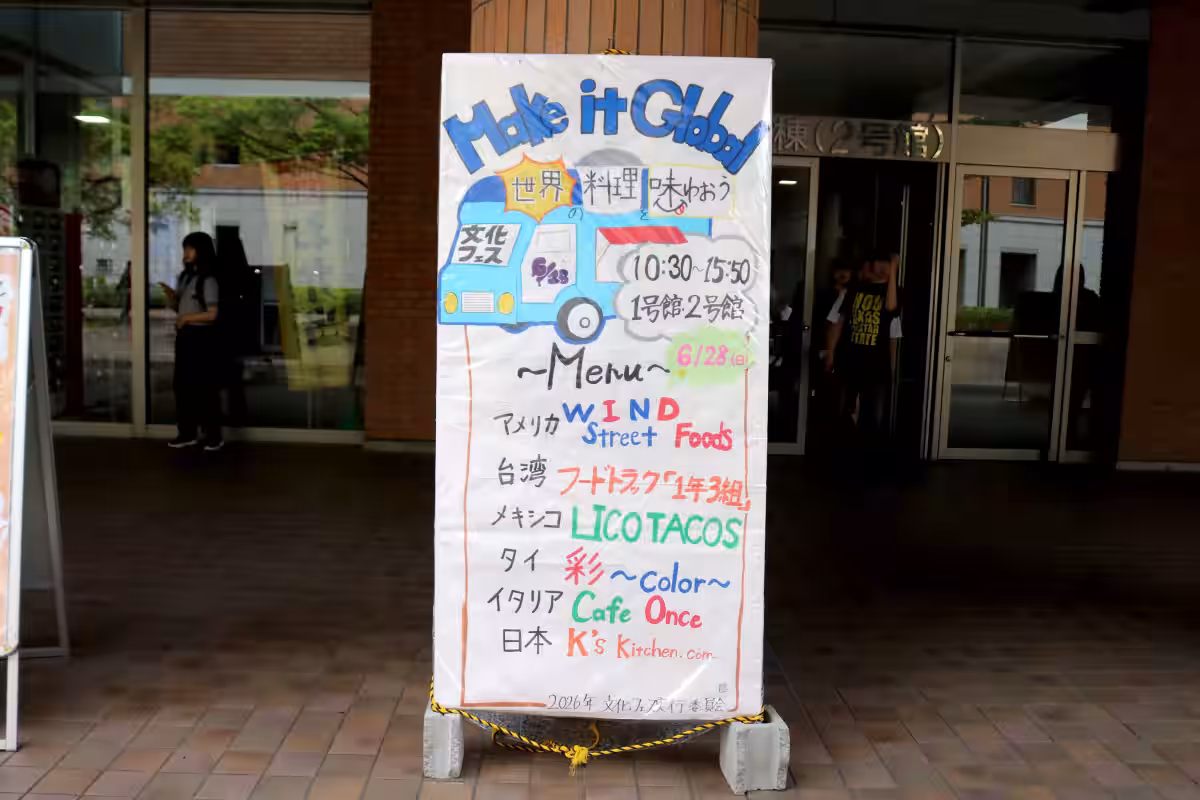 Make it Global
世界の料理を味わおう
文化
フェス
6/28
10:30~15:50
1号館・2号館
~Menu~
6/28(日)
アメリカ WIND Street Foods
台湾 フードトラック「1年3組」
メキシコ LICO TACOS
タイ 彩 ~color~
イタリア Cafe Once
日本 K's Kitchen.com
2026年 文化フェス実行委員会
棟(2号館)